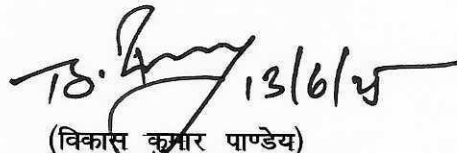 13/6/25
(विकास कुमार पाण्डेय)